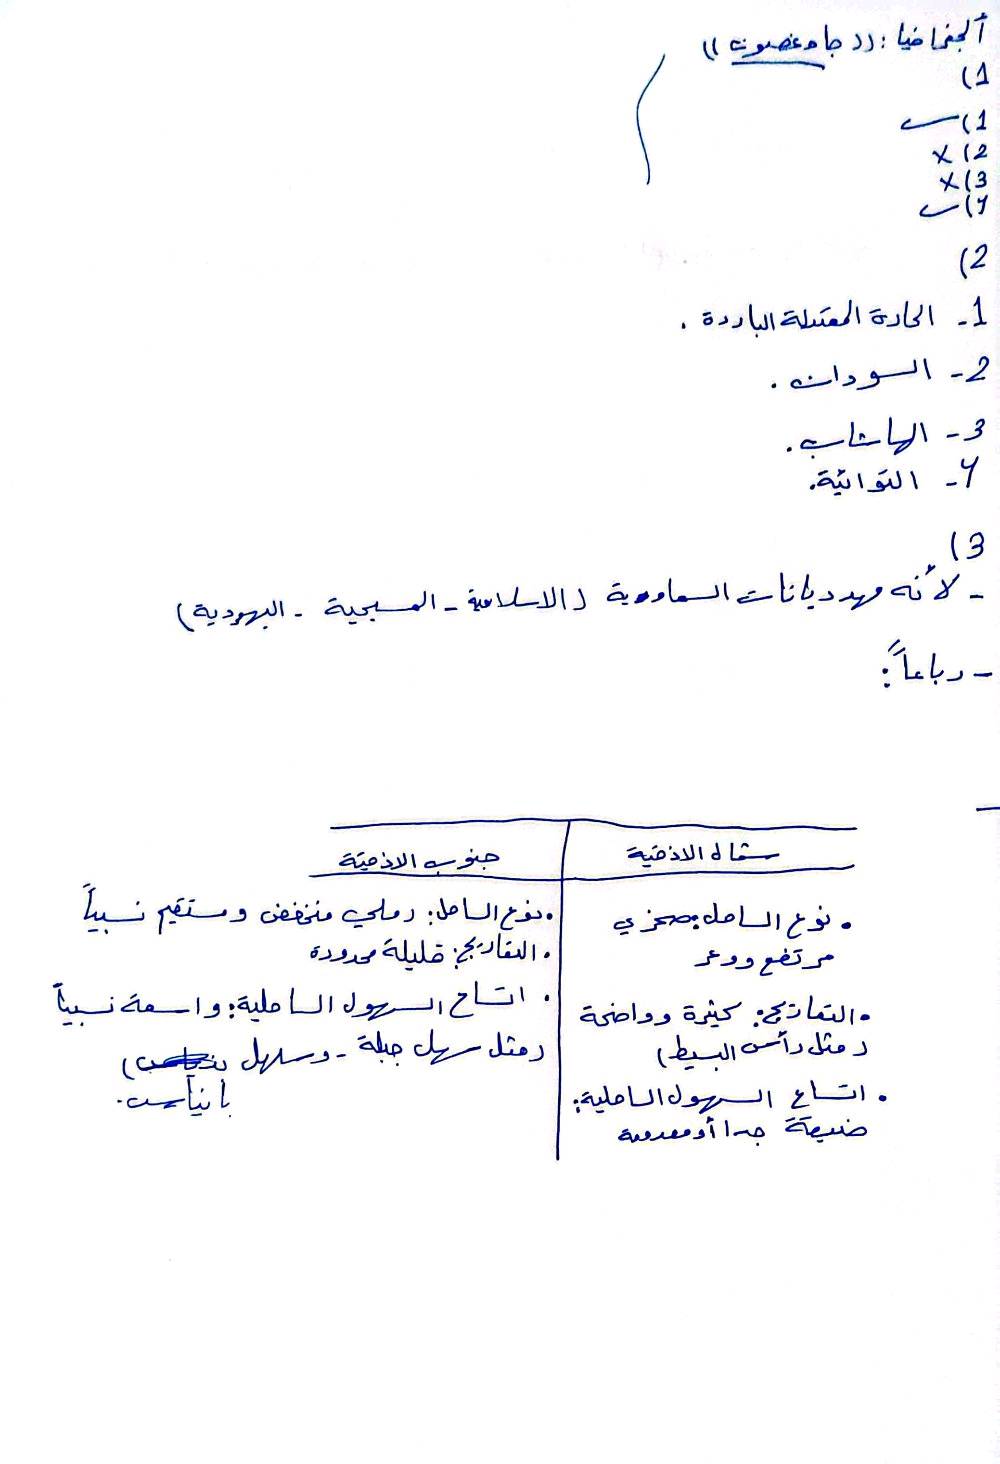 ألجغرافيا: ((جاد غصون))
1)
1) ب
2) X
3) X
4) ب
2)
1- الحارة المعتدلة الباردة .
2- السودان .
3- الهاشاب .
4- التوائية.
3)
- لأنه مهد ديانات السماوية (الاسلامية - المسيحية - اليهودية)
- رباعاً:
شمال الاذقية
جنوب الاذقية
• نوع الساحل: صخري
مرتفع ووعر
• التعاريج: كثيرة وواضحة
(مثل رأس البسيط)
• اتساع السهول الساحلية:
ضيقة جدا أو معدومة
• نوع الساحل: رملي منخفض ومستقيم نسبياً
• التعاريج: قليلة محدودة
• اتساع السهول الساحلية: واسعة نسبياً
(مثل سهل جبلة - وسهل
بانياس.